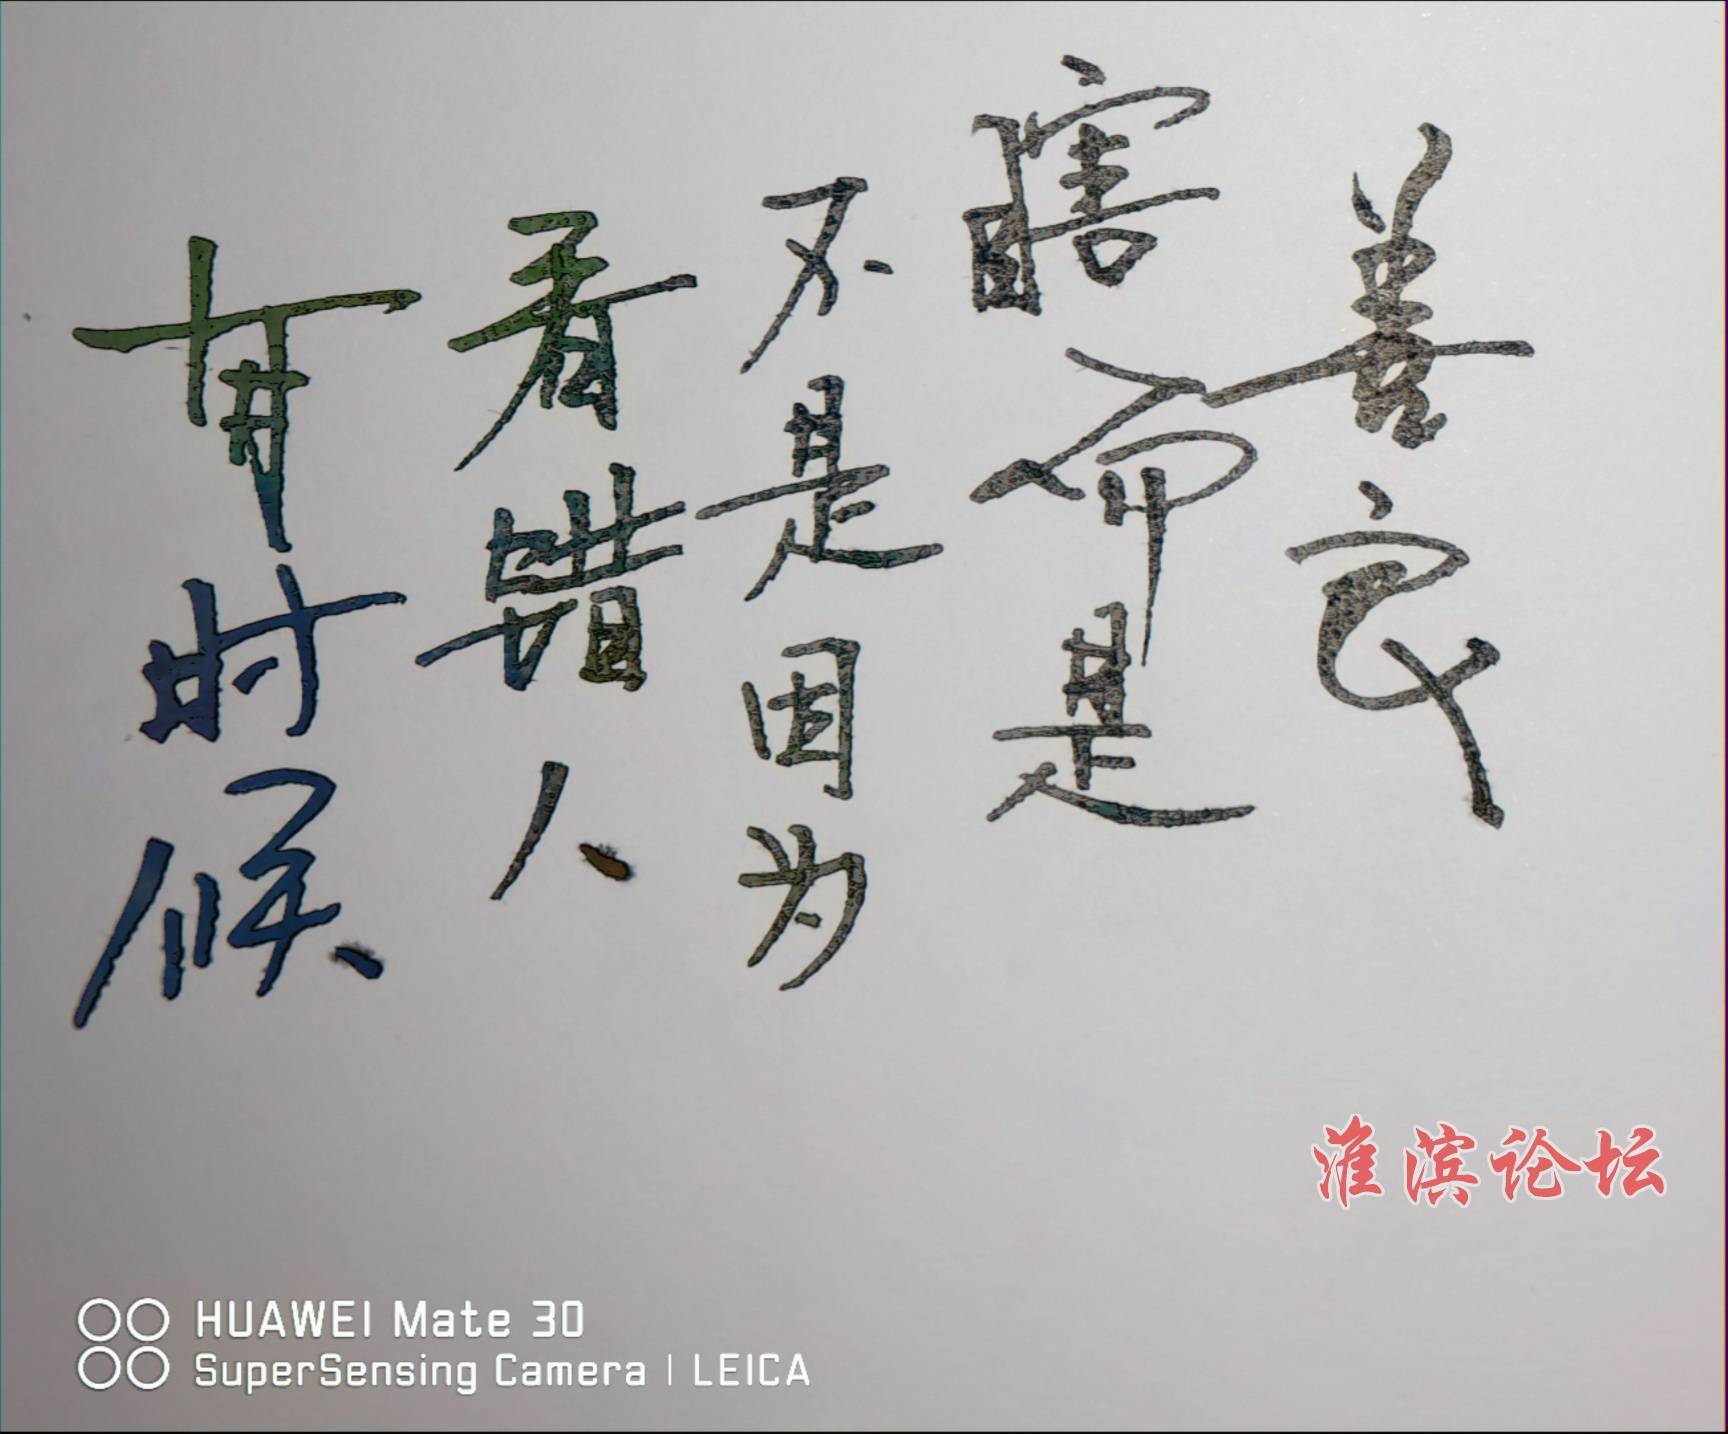 有时候
看错人
不是因为
瞎而是
善良
淮滨论坛
HUAWEI Mate 30
SuperSensing Camera | LEICA